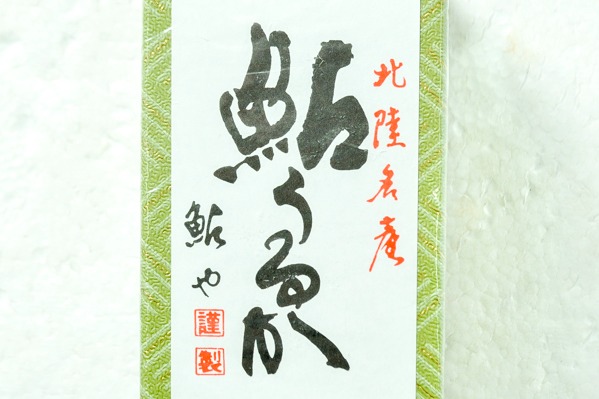 北陸名産
鮎うるか
鮎や
謹製